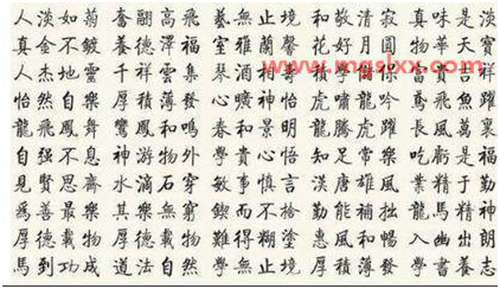 人淡如菊 奮翮高飛 藝無止境 和敬清寂 真味是淡
真金不鍍 養德澤福 室雅蘭馨 花好月圓 物華天寶
人杰地靈 千祥雲集 琴酒相 積學儲
怡然自樂 厚積薄發 心曠神怡 虎嘯龍吟 鳶飛魚躍
龍飛鳳舞 鸞鳳和鳴 春和景明 龍騰虎躍 長風萬裏
自强不息 神游物外 學貴心悟 知足常樂 吃虧是福
見賢思齋 水滴石穿 敏事慎言 漢唐雄風 業精于勤
為善最樂 其樂無窮 鍥而不捨 勤能補拙 龍馬精神
厚德載物 厚德載物 難得糊塗 惠風和暢 入幽出朗
馬到功成 道法自然 學無止境 厚積薄發 學書養志
www.mgslxx.com